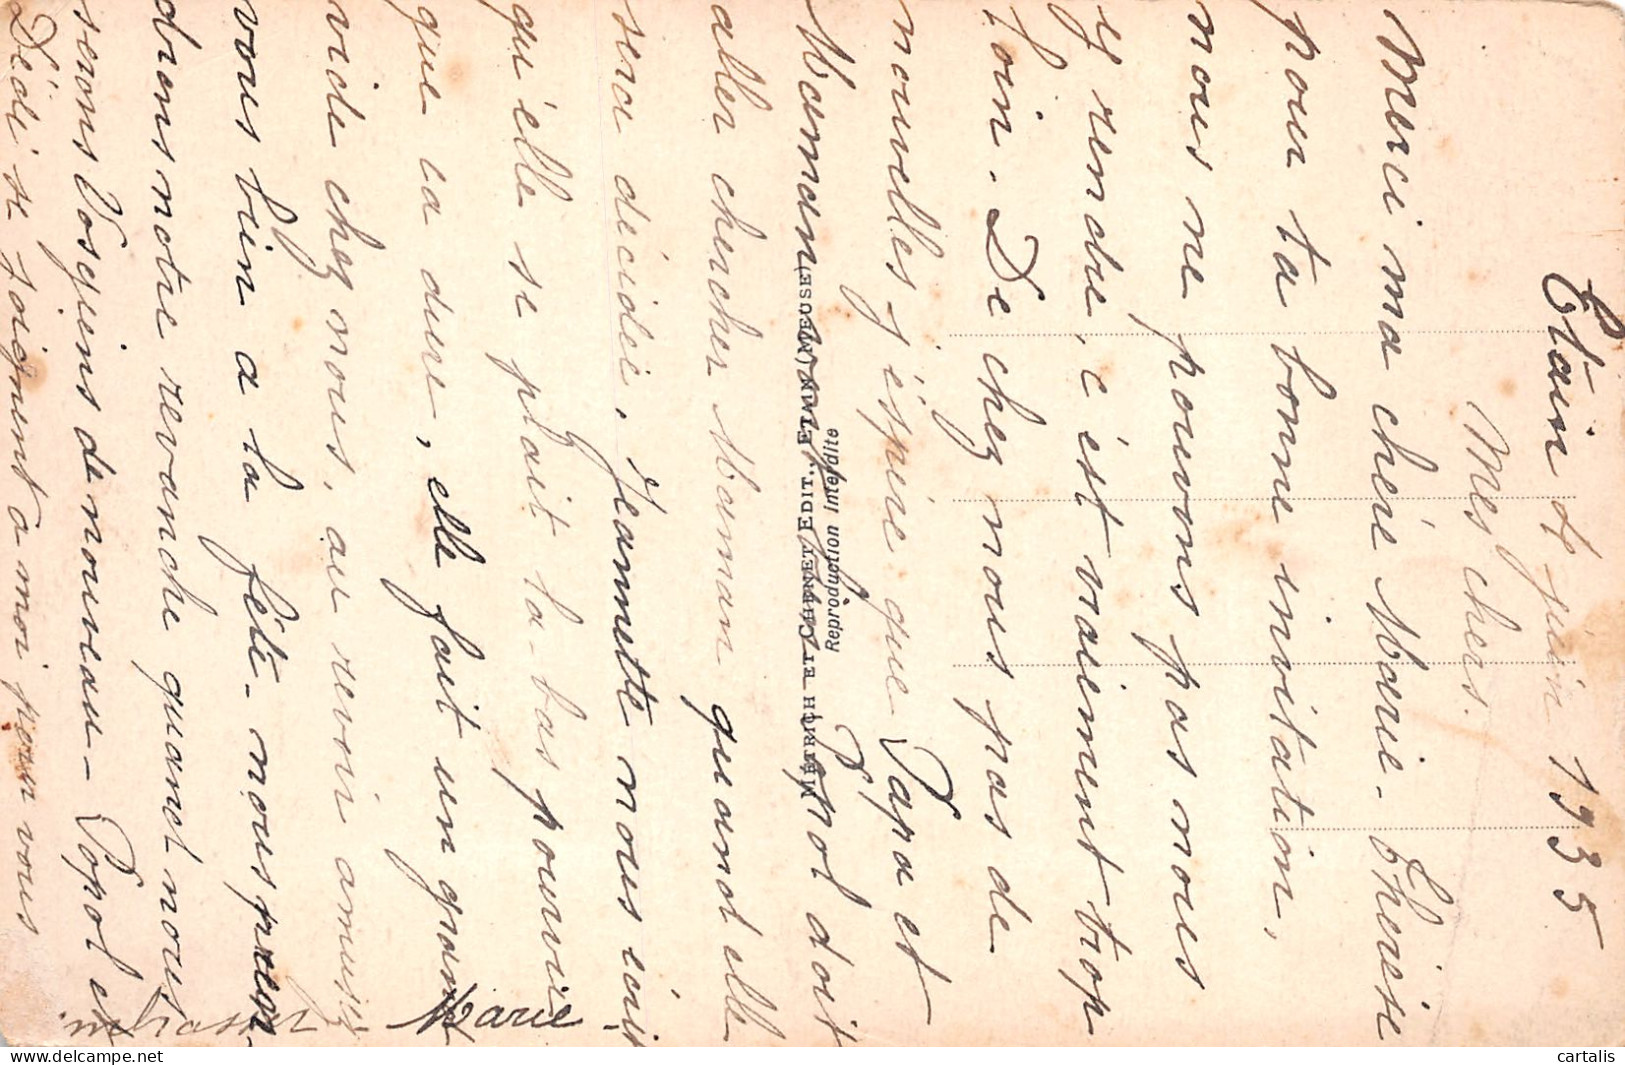 Etain 4 juin 1935
Mes chers.
Merci ma chère Marie-Thérèse
pour ta bonne invitation,
nous ne pouvons pas nous
y rendre, c'est vraiment trop
loin. De chez nous pas de
nouvelles j'éspère que Papa et
Maman vont bien. Popol doit
aller chercher Maman quand elle
sera décidée, Jeannette nous écrit
qu'elle se plait la-bas pourvu
que ça dure, elle fait un grand
vide chez nous, au revoir amusez
vous bien a la fête - nous
drons notre revanche quand nous
serons Vosgiens de nouveau - Popol et
Dédé se joignent a moi pour vous
embrasser Marie -
MÉTRICH ET CABRET EDIT., ETAIN (MEUSE)
Reproduction Interdite
cartalis